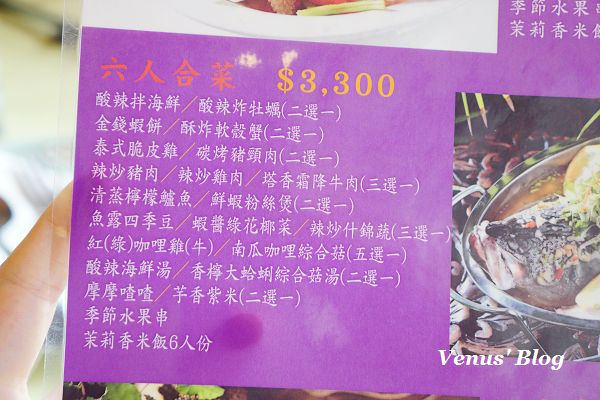 季節水果串
茉莉香米飯
六人合菜 $3,300
酸辣拌海鮮／酸辣炸牡蠣(二選一)
金錢蝦餅／酥炸軟殼蟹(二選一)
泰式脆皮雞／碳烤豬頸肉(二選一)
辣炒豬肉／辣炒雞肉／塔香霜降牛肉(三選一)
清蒸檸檬鱸魚／鮮蝦粉絲煲(二選一)
魚露四季豆／蝦醬綠花椰菜／辣炒什錦蔬(三選一)
紅(綠)咖哩雞(牛)／南瓜咖哩綜合菇(五選一)
酸辣海鮮湯／香檸大蛤蜊綜合菇湯(二選一)
摩摩喳喳／芋香紫米(二選一)
季節水果串
茉莉香米飯6人份
Venus' Blog